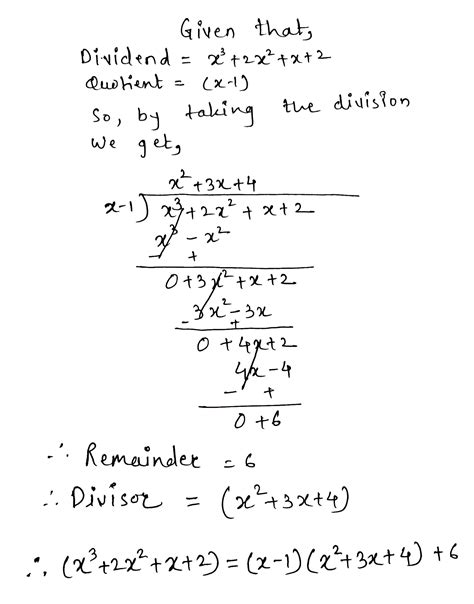 Given that,
Dividend = x³+2x²+x+2
Quotient = (x-1)
So, by taking the division
we get,
x²+3x+4
x-1) x³+2x²+x+2
x³-x²
- +
0+3x²+x+2
3x²-3x
- +
0+4x+2
4x-4
- +
0+6
∴ Remainder = 6
∴ Divisor = (x²+3x+4)
∴ (x³+2x²+x+2) = (x-1)(x²+3x+4) +6